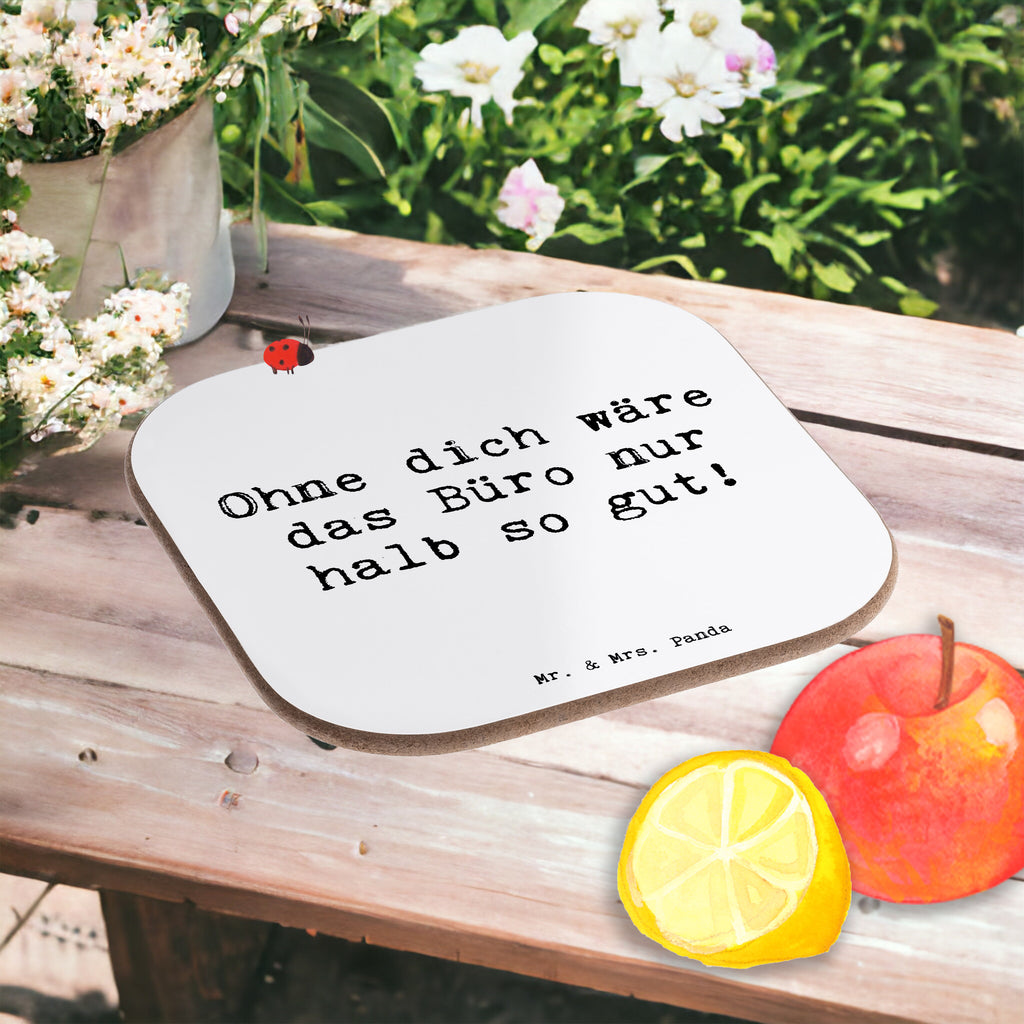 Ohne dich wäre
das Büro nur
halb so gut!
Mr. & Mrs. Panda